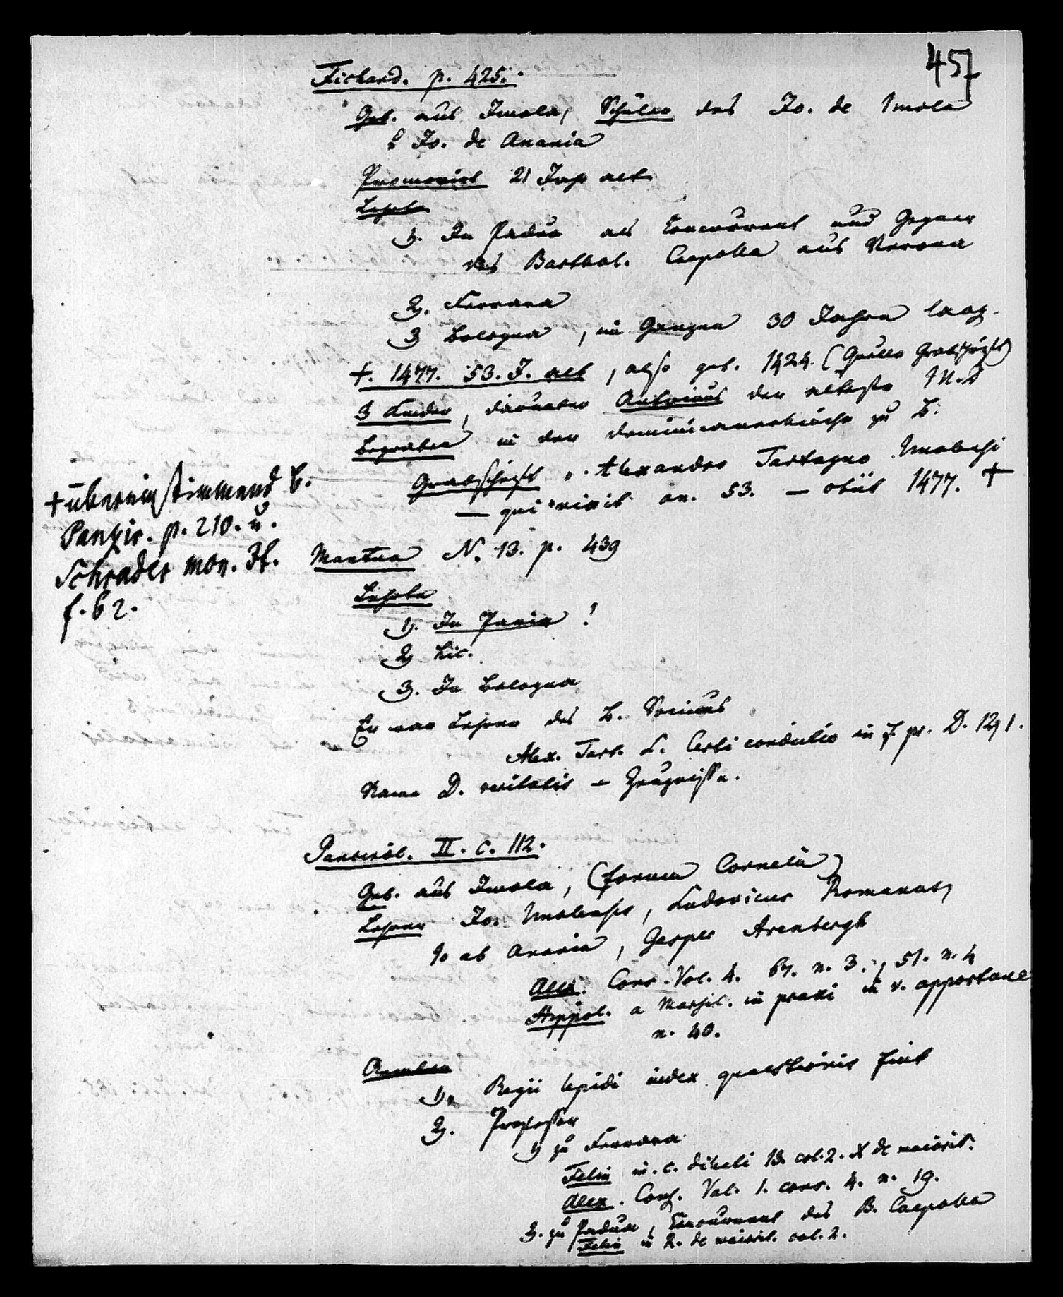 457
Fichard. p. 425.
Geb. aus Imola, Schüler des Jo. de Imola
& Jo. de Anania
Promovirt 21 Jahr alt
Lehrte
1). In Padua als Concurrent und Gegner
des Barthol. Caepolla aus Verona
2). Ferrara
3 Bologna, im Ganzen 30 Jahre lang.
†. 1477. 53. J. alt, also geb. 1424. (Quelle Grabschrift)
3 Kinder, darunter Antonius der älteste
Begraben in der Dominicanerkirche zu B.
Grabschrift Alexander Tartagno Imolensi
— qui vixit an. 53. — obiit 1477. +
+ übereinstimmend b.
Panzir. p. 210. u.
Schrader mon. It.
f. 62.
Mantua N. 13. p. 439
Lehrte
1). In Pavia!
2) hic.
3). In Bologna
Er war Lehrer des B. Socinus
Alex. Tart. L. Certi condictio in pr. D. 12, 1.
Name D. veritatis – Zeugnisse.
Panzirol. II. c. 112.
Geb. aus Imola, (forum Cornelii)
Lehrer Jo. Imolensis, Ludovicus Romanus,
Jo ab Anania, Gasper Arenbergh
Alex. Cons. Vol. 4. 67. n. 3., 51. n. 4
Hippol. a Marsil. in praxi in v. opportune
n. 40.
Aemter
1). Regii Lepidi index quaestionis fuit
2). Professor
1) zu Ferrara
Felin in c. dilecti 13. col. 2. X de maiorit.
Alex. Cons. Vol. 1. cons. 4. n. 19.
2. zu Padua, Concurrent des B. Caepolla
Felin in 2. de maiorit. col. 2.